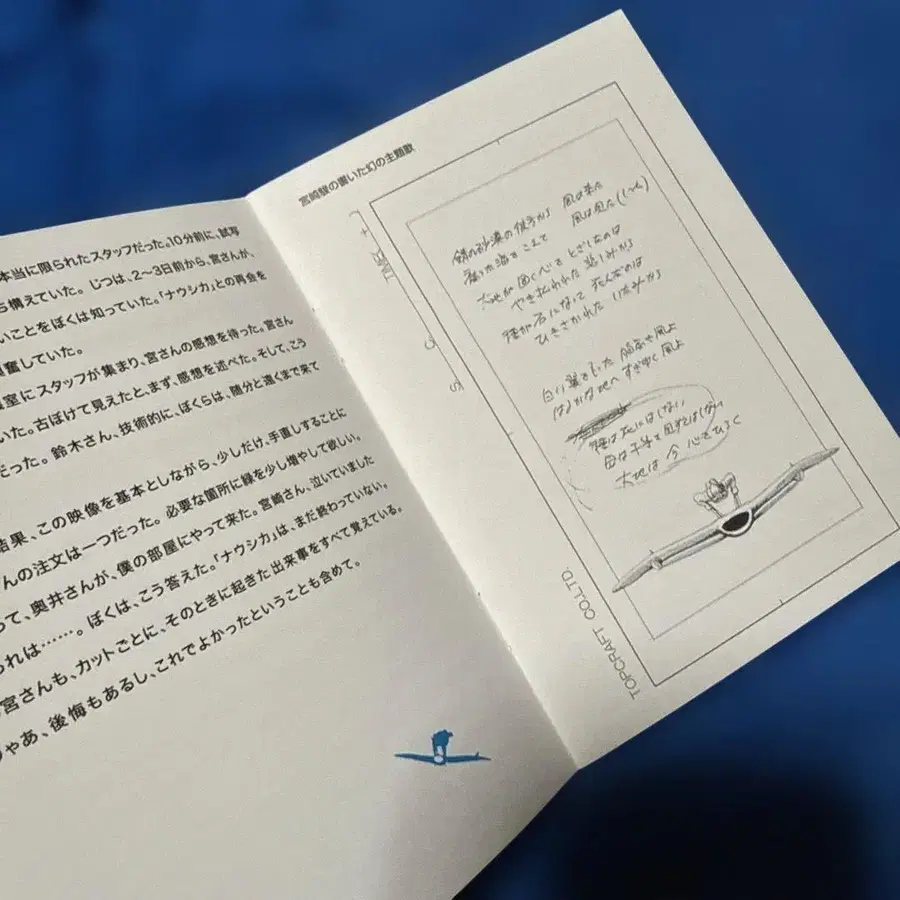 本当に限られたスタッフだった。10分前に、試写
ち構えていた。じつは、2〜3日前から、宮さんが、
いことをぼくは知っていた。「ナウシカ」との再会を
興奮していた。
室にスタッフが集まり、宮さんの感想を待った。宮さん
いた。古ぼけて見えたと、まず、感想を述べた。そして、こう
だった。鈴木さん、技術的に、ぼくらは、随分と遠くまで来て
結果、この映像を基本としながら、少しだけ、手直しすることに
んの注文は一つだった。必要な箇所に緑を少し増やして欲しい。
って、奥井さんが、僕の部屋にやって来た。宮崎さん、泣いていました
られは……。ぼくは、こう答えた。「ナウシカ」は、まだ終わっていない。
宮さんも、カットごとに、そのときに起きた出来事をすべて覚えている。
ゃあ、後悔もあるし、これでよかったということも含めて。
宮崎駿の書いた幻の主題歌
TIME
錆の砂漠の彼方から 風は来た
腐った海をこえて 風は見た
大地が固く心をとざしたのは
やき払われた 悲しみから
種が石になって 死んだのは
ひきさかれた いたみから
白い翼をもった 風よ
はるかな地へ すぎゆく風よ
種は死にはしない
大地は 今 心をひらく
TOPCRAFT CO.LTD.